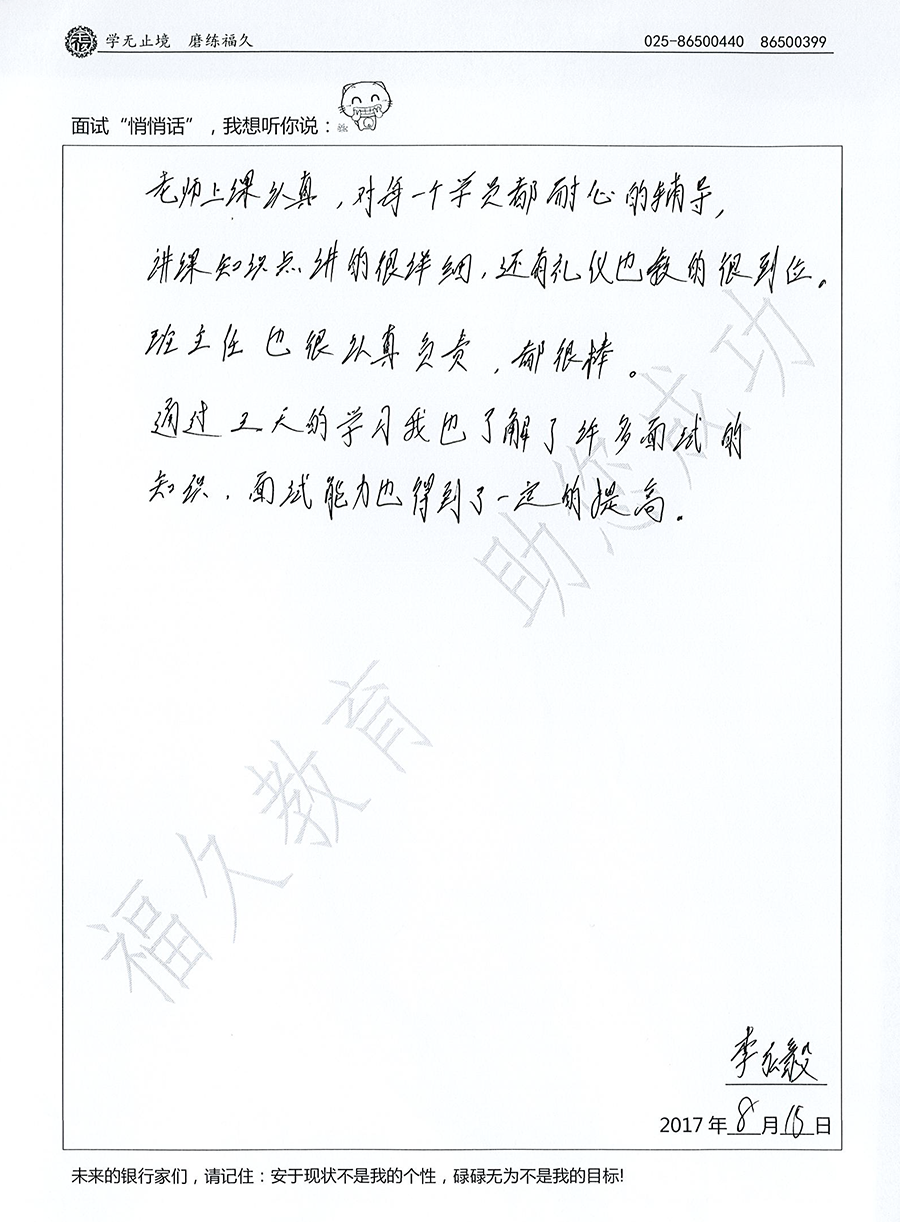 学无止境 磨练福久
025-86500440 86500399
面试“悄悄话”，我想听你说：
老师上课认真，对每一个学员都耐心的辅导，
讲课知识点讲的很详细，还有礼仪也教的很到位。
班主任也很认真负责，都很棒。
通过五天的学习我也了解了许多面试的
知识，面试能力也得到了一定的提高。
福久教育 助您成功
李弘毅
2017年8月15日
未来的银行家们，请记住：安于现状不是我的个性，碌碌无为不是我的目标!